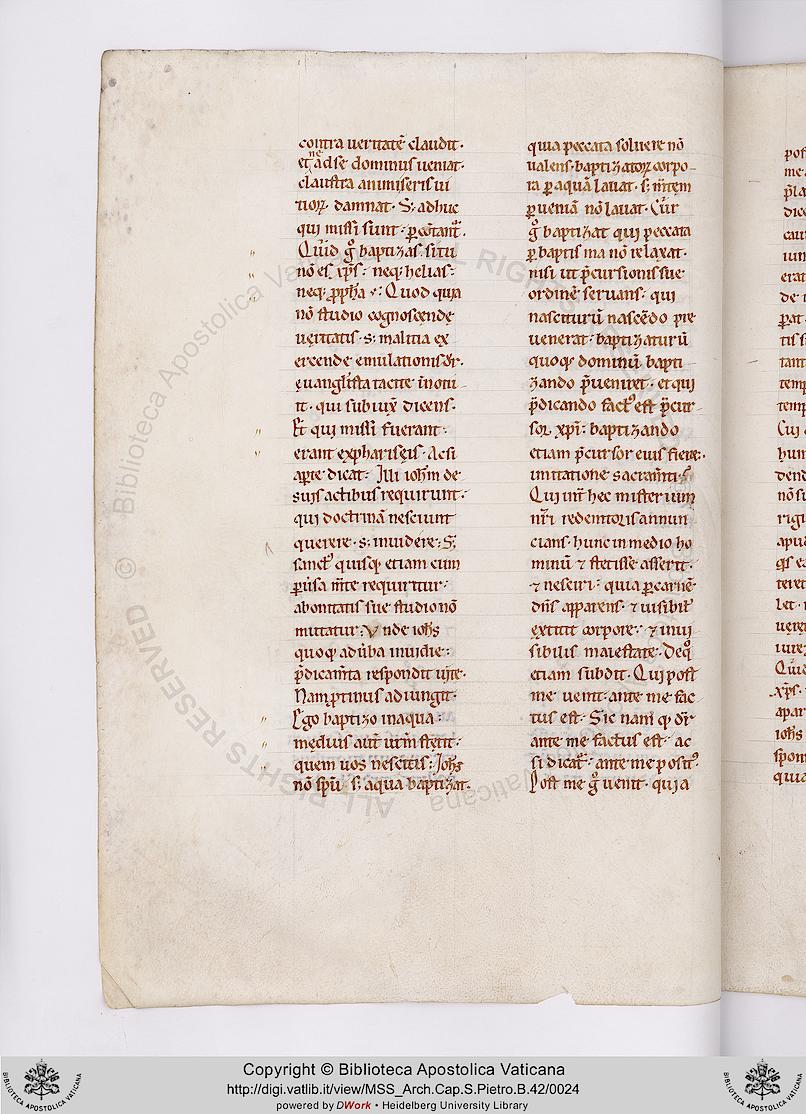 contra ueritatē claudit·
et ne adse dominus ueniat·
claustra animiseris ui
tiorꝝ damnat· S; adhuc
qui missi sunt· ꝑcōtantᷣ·
Quid gͦ baptizas· situ
nō es xp̄s· neqꝫ helias·
neqꝫ ꝓpħa · Quod quia
nō studio cognoscende
ueritatis· s; malitia ex
ercende emulationis dr̄·
euangl̄ista tacite īnotu
it· qui subiūx̄ dicens·
Et qui missi fuerant·
erant expharisęis· Acsi
aꝑte dicat· Illi ioh̄m de
suis actibus requirunt·
qui doctrinā nesciunt
querere· s; inuidere· S;
sanctꝰ quisqꝫ etiam cum
ꝑuersa m̄te requiritur·
abonitatis sue studio nō
mutatur· Vnde ioh̄s
quoqꝫ aduerba inuidie·
p̄dicam̄ta respondit uitę·
Nam ꝓtinus adiungit·
Ego baptizo inaqua·
medius aut̄ ur̄m stetit·
quem uos nescitis· Ioh̄s
nō sp̄u s; aqua baptizat·
quia peccata soluere nō
ualens· baptizatorꝝ corpo
ra ꝑ aquā lauat· s; m̄tem
ꝑ ueniā nō lauat· Cur
gͦ baptizat qui peccata
ꝑ baptisma nō relaxat·
nisi ut p̄cursionis sue
ordinē seruans· qui
nasciturū nascēdo pre
uenerat· baptizaturū
quoqꝫ dominū bapti
zando p̄ueniret· et qui
p̄dicando factꝰ est p̄cur
sor xp̄i· baptizando
etiam p̄cursor eius fieret·
imitatione sacram̄ti·
Qui int̄ hec misterium
nr̄i redemtoris annun
cians· hunc in medio ho
minū ⁊ stetisse asserit·
⁊ nesciri· quia ꝑ carnē
dn̄s apparens· ⁊ uisibilꝰ
extitit corpore· ⁊ inui
sibilis maiestate· Deqͦ
etiam subdit· Qui post
me uenit· ante me fac
tus est· Sic nam̄ qꝫ dr̄
ante me factus est· ac
si dicatᷣ· ante me positꝰ·
Post me gͦ uenit· quia
Copyright © Biblioteca Apostolica Vaticana
http://digi.vatlib.it/view/MSS_Arch.Cap.S.Pietro.B.42/0024
powered by DWork • Heidelberg University Library